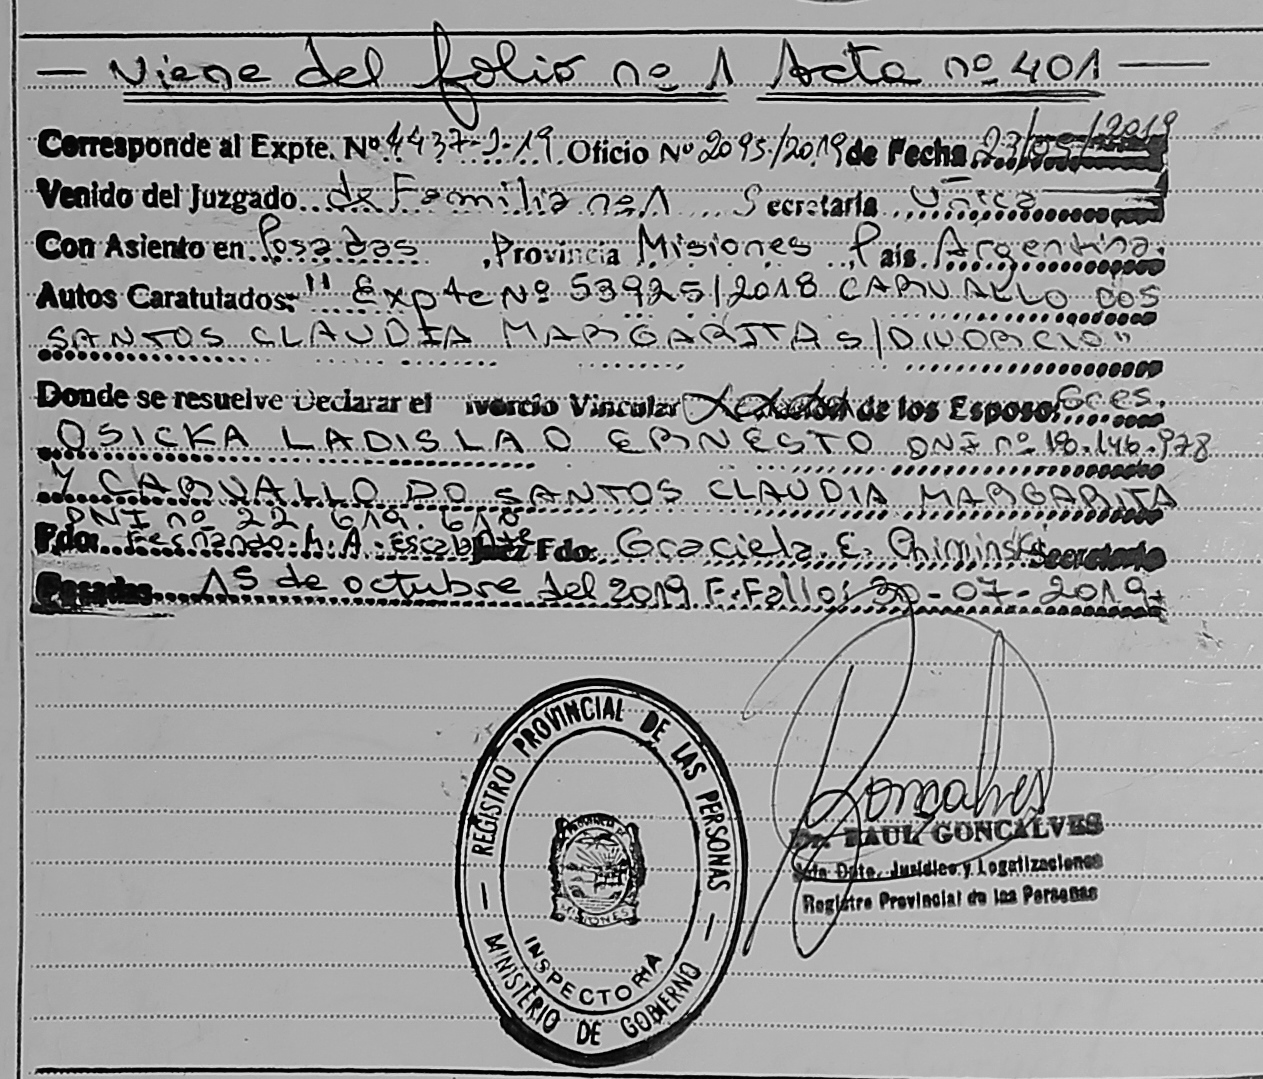 — Viene del folio nº 1 Acta nº 401 —
Corresponde al Expte. Nº 4437-J-19. Oficio Nº 2095/2019 de Fecha 23/09/2019
Venido del Juzgado de Familia nº 1 Secretaría Única
Con Asiento en Posadas, Provincia Misiones País Argentina.
Autos Caratulados: "Expte Nº 53925/2018 CARVALLO DOS
SANTOS CLAUDIA MARGARITA S/DIVORCIO"
Donde se resuelve Declarar el ivorcio Vincular de los Esposos: Gces.
OSICKA LADISLAO ERNESTO DNI nº 18.146.978
Y CARVALLO DO SANTOS CLAUDIA MARGARITA
DNI nº 22.619.610
Fdo: Fernando M. A. Escobar Juez Fdo: Graciela E. Chiminski Secretario
Posadas 15 de octubre del 2019 F. Fallo: 30-07-2019.
REGISTRO PROVINCIAL DE LAS PERSONAS
MISIONES
INSPECTORIA
MINISTERIO DE GOBIERNO
Goncalves
Dr. RAUL GONCALVES
Jefe Dpto. Jurídico y Legalizaciones
Registro Provincial de las Personas